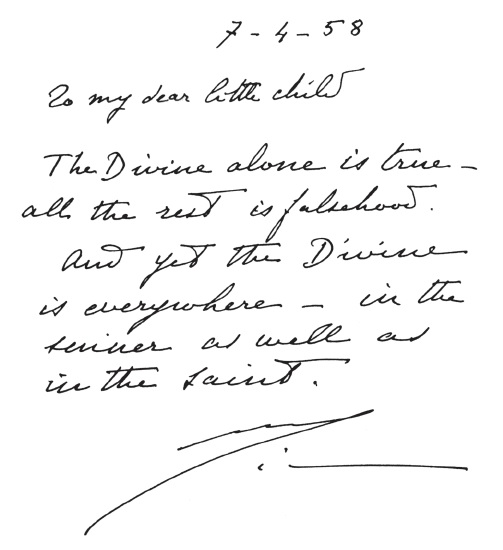 7-4-58
To my dear little child
The Divine alone is true –
all the rest is falsehood.
And yet the Divine
is everywhere – in the
sinner as well as
in the saint.